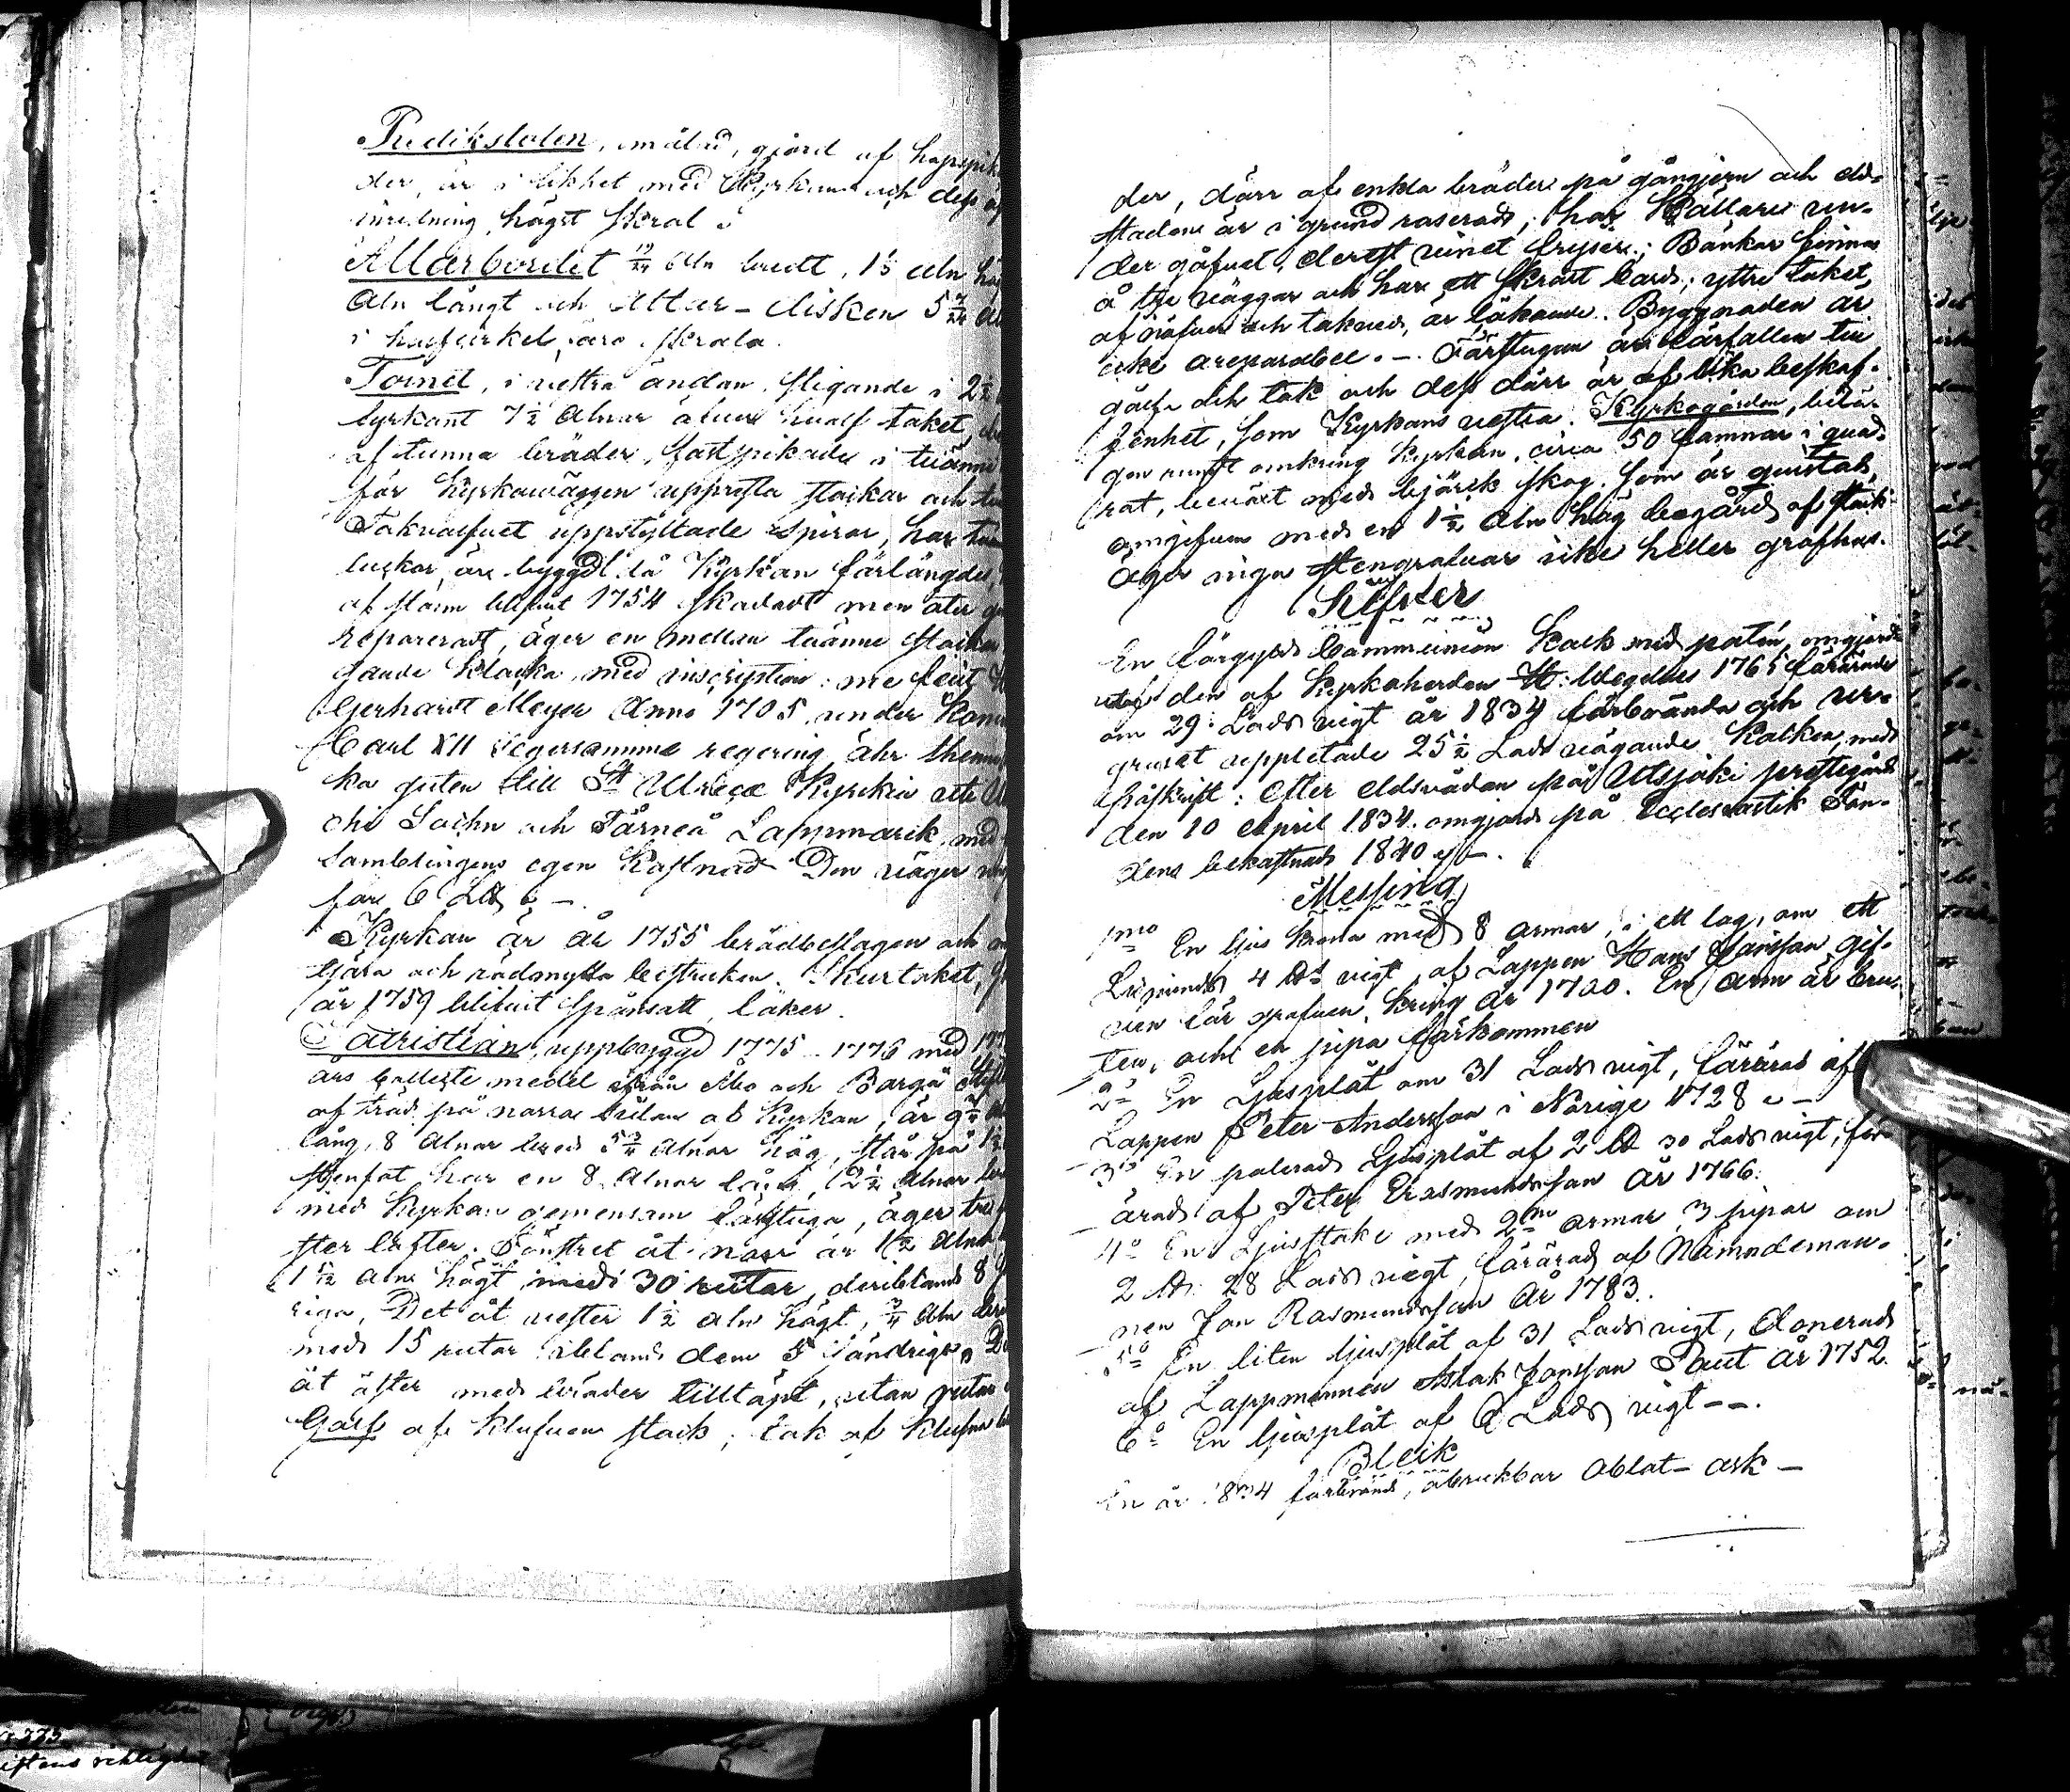 Predikstolen, omålad, gjord af hopspik
der, är i likhet med Kyrkan och dess
inredning högst skral
Altarbordet 19/24 aln bredt, 1 1/2 aln hög
aln långt och Altar-disken 5 7/24
i halfcirkel, äro skrala.
Tornet, i vestra ändan, stigande i 2 1/2
fyrkant 7 1/2 Alnar öfver hvalf taket,
af tunna bräder, fastspikade i tvänne
för Kyrkoväggen uppresta stockar och
Takhvalfvet uppstyltade spiror, har
luckor, är byggdt då Kyrkan förlängdes,
af storm blifvit 1754 skadadt men åter
repareradt, äger en mellan tvänne stockar
gande Klocka, med inscription: me fecit
Gerhardt Meyer Anno 1705, under Konu
Carl XII segersamma regering ähr thenna
ka guten till St Ulricæ Kyrckia uti
chi Sochn och Torneå Lappmarck, med
Samblingens egen Kostnad Den väger
fær 6 L℔ –.
Kyrkan är år 1755 brädbeslagen och
tjära och rödmylla bestruken. Skurtaket,
år 1759 blifvit spånsatt, läker.
Sacristian, uppbyggd 1775–1776 med 177
års collecte medel ifrån Åbo och Borgå Stift
af träd på norra sidan af Kyrkan, är 9
lång, 8 alnar bred 5 3/4 alnar hög, står på 1 1/2
stenfot har en 8 alnar lång, 2 1/2 alnar
med Kyrkan gemensam förstuga, äger tre
ster lufter. Fönstret åt norr är 1 1/2 aln
1 1/2 aln högt, med 30 rutor, deribland 8
riga, Det åt vester 1 1/2 aln högt, 3/4 aln
med 15 rutor ibland dem 5 oändriga
åt öster med bräder tilltäpt, utan rutor
Golf af klufven stock; tak af klufna
der, dörr af enkla bräder på gångjern och eld-
staden är i grund raserad; har Källare un-
der golfvet, derest vinet fryser; Bänkar finnas
å tre väggar och har ett skralt bord; yttre taket
af näfver och takved, är läkande. Byggnaden är
icke areparabel. –. Förstugan är förfallen till
golf och tak och dess dörr är af lika beskaf-
fenhet, som Kyrkans vestra. Kyrkogården, belä-
gen rundt omkring Kyrkan, circa 50 famnar i quad-
rat, beväxt med björck skog. som är quistad,
omgifven med en 1 1/2 aln hög bogård af stock
äger inga stengrafvar icke heller grafhus.
Silfver
En förgyld Communion Kalk med patén, omgjord
utaf den af Kyrkoherden H: Wegelius 1765 förärade
om 29: Lods vigt år 1834 förbrända och ur-
gruset uppletade 25 1/2 Lod vägande Kalken, med
påskrift: Efter eldsvådan på Utsjoki prestegård
den 10 April 1834. omgjord på Ecclesiastik Fon-
dens bekostnad 1840 –.
Messing
1mo En ljus krona med 8 armar, i ett lag, om ett
Lispund 4 ℔s vigt, af Lappen Hans Jonsson gif-
ven för grafven kring år 1720. En arm är bru-
ten, och en pipa förkommen
2o En Ljusplåt om 31 Lods vigt, förärad af
Lappen Peter Andersson i Norige 1728 –
3o En polerad Ljusplåt af 2 ℔ 30 Lods vigt, för-
ärad af Peter Erasmundsson år 1766.
4o En Ljusstake med 2ne armar 3 pipor om
2 ℔ 28 Lods vigt, förärad af Nämndeman-
nen Jon Rasmundsson år 1783.
5o En liten ljusplåt af 31 Lods vigt, donerad
af Lappmannen Aslak Jonsson Paut år 1752.
6o En ljusplåt af 6 Lods vigt --.
Bleck
En år 1834 förbränd, obrukbar Oblat-ask –